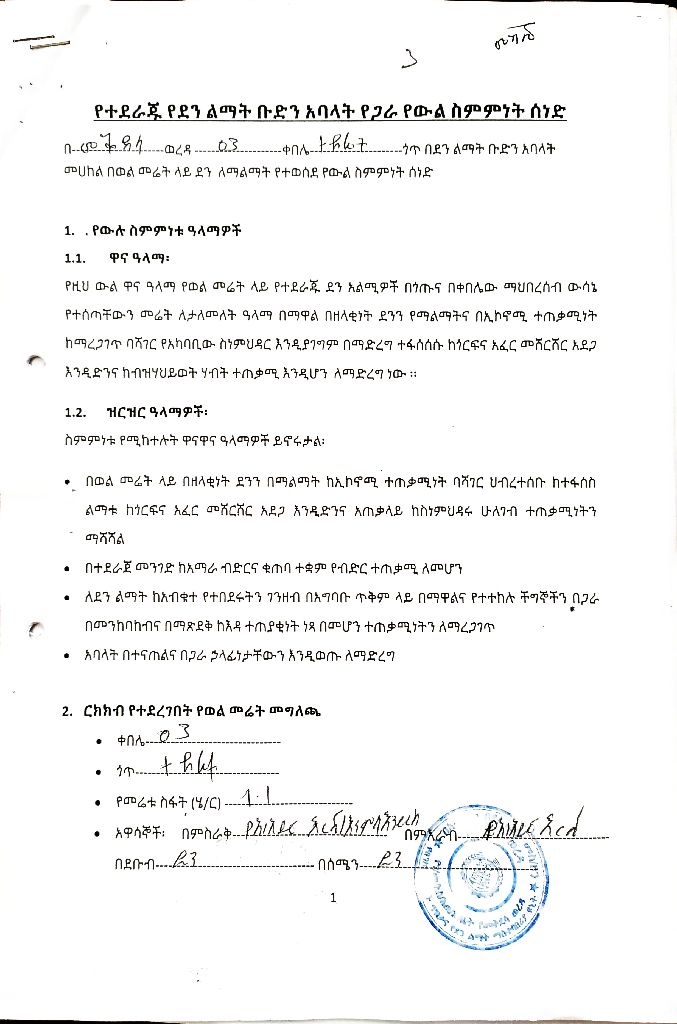 3
የተደራጁ የደን ልማት ቡድን አባላት የጋራ የውል ስምምነት ሰነድ
በ መቅደላ ወረዳ 03 ቀበሌ ጎጥ በደን ልማት ቡድን አባላት
መሀከል በወል መሬት ላይ ደን ለማልማት የተወሰደ የውል ስምምነት ሰነድ
1. . የውሉ ስምምነቱ ዓላማዎች
1.1. ዋና ዓላማ፡
የዚህ ውል ዋና ዓላማ የወል መሬት ላይ የተደራጁ ደን አልሚዎች በጎጡና በቀበሌው ማህበረሰብ ውሳኔ
የተሰጣቸውን መሬት ለታለመለት ዓላማ በማዋል በዘላቂነት ደንን የማልማትና በኢኮኖሚ ተጠቃሚነት
ከማረጋገጥ ባሻገር የአካባቢው ስነምህዳር እንዲያገግም በማድረግ ተፋሰሰሱ ከጎርፍና አፈር መሸርሸር አደጋ
እንዲድንና ከብዝሃህይወት ሃብት ተጠቃሚ እንዲሆን ለማድረግ ነው ።
1.2. ዝርዝር ዓላማዎች፡
ስምምነቱ የሚከተሉት ዋናዋና ዓላማዎች ይኖሩታል፡
• በወል መሬት ላይ በዘላቂነት ደንን በማልማት ከኢኮኖሚ ተጠቃሚነት ባሻገር ህብረተሰቡ ከተፋሰስ
ልማቱ ከጎርፍና አፈር መሸርሸር አደጋ እንዲድንና አጠቃላይ ከስነምህዳሩ ሁለገብ ተጠቃሚነትን
ማሻሻል
• በተደራጀ መንገድ ከአማራ ብድርና ቁጠባ ተቋም የብድር ተጠቃሚ ለመሆን
• ለደን ልማት ከአብቁተ የተበደሩትን ገንዘብ በአግባቡ ጥቅም ላይ በማዋልና የተተከሉ ችግኞችን በጋራ
በመንከባከብና በማጽደቅ ከእዳ ተጠያቂነት ነጻ በመሆን ተጠቃሚነትን ለማረጋገጥ
• አባላት በተናጠልና በጋራ ኃላፊነታቸውን እንዲወጡ ለማድረግ
2. ርክክብ የተደረገበት የወል መሬት መግለጫ
• ቀበሌ 03
• ጎጥ
• የመሬቱ ስፋት (ሄ/ር) 1.1
• አዋሳኞች፡ በምስራቅ በምእራብ
በደቡብ ደን በሰሜን ደን
1